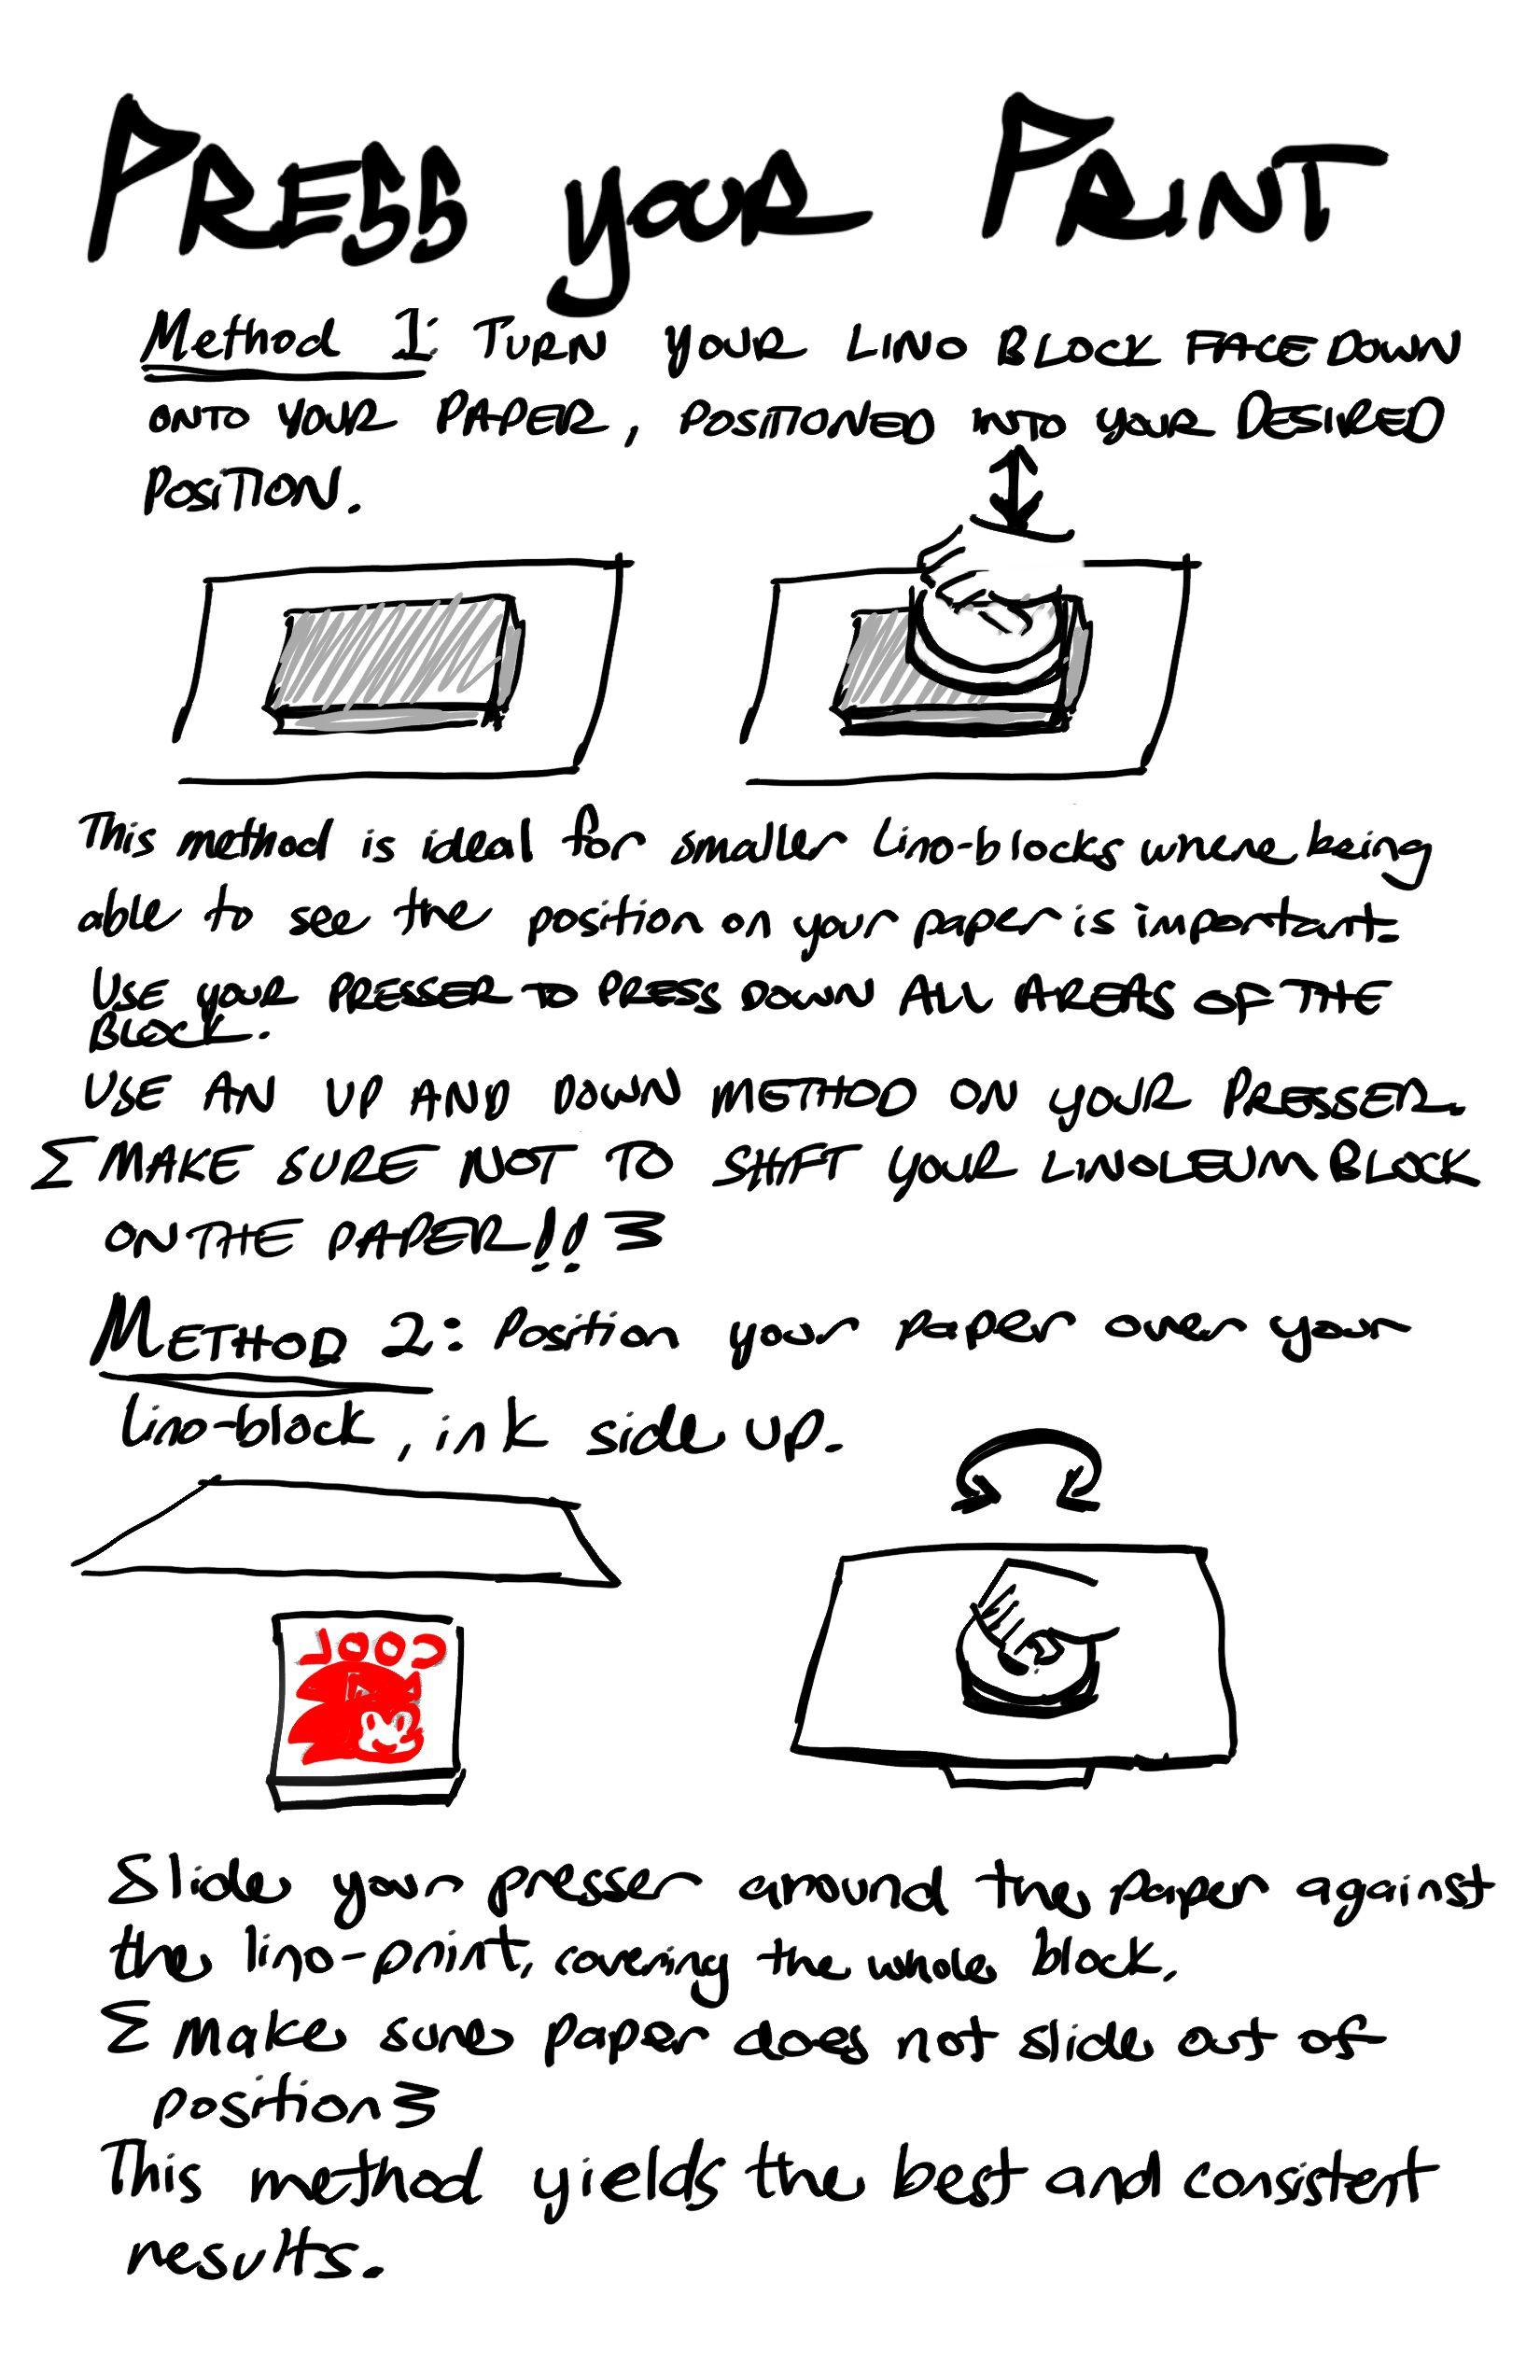 PRESS your PRINT
Method 1: TURN YOUR LINO BLOCK FACE DOWN
ONTO YOUR PAPER, POSITIONED INTO YOUR DESIRED
POSITION.
This method is ideal for smaller Lino-blocks where being
able to see the position on your paper is important.
USE YOUR PRESSER TO PRESS DOWN ALL AREAS OF THE
BLOCK.
USE AN UP AND DOWN METHOD ON YOUR PRESSER.
Σ MAKE SURE NOT TO SHIFT YOUR LINOLEUM BLOCK
ON THE PAPER!! 3
METHOD 2: Position your paper over your
lino-block, ink side up.
COOL
Slide your presser around the paper against
the lino-print, covering the whole block.
Σ Make sure paper does not slide out of
position 3
This method yields the best and consistent
results.